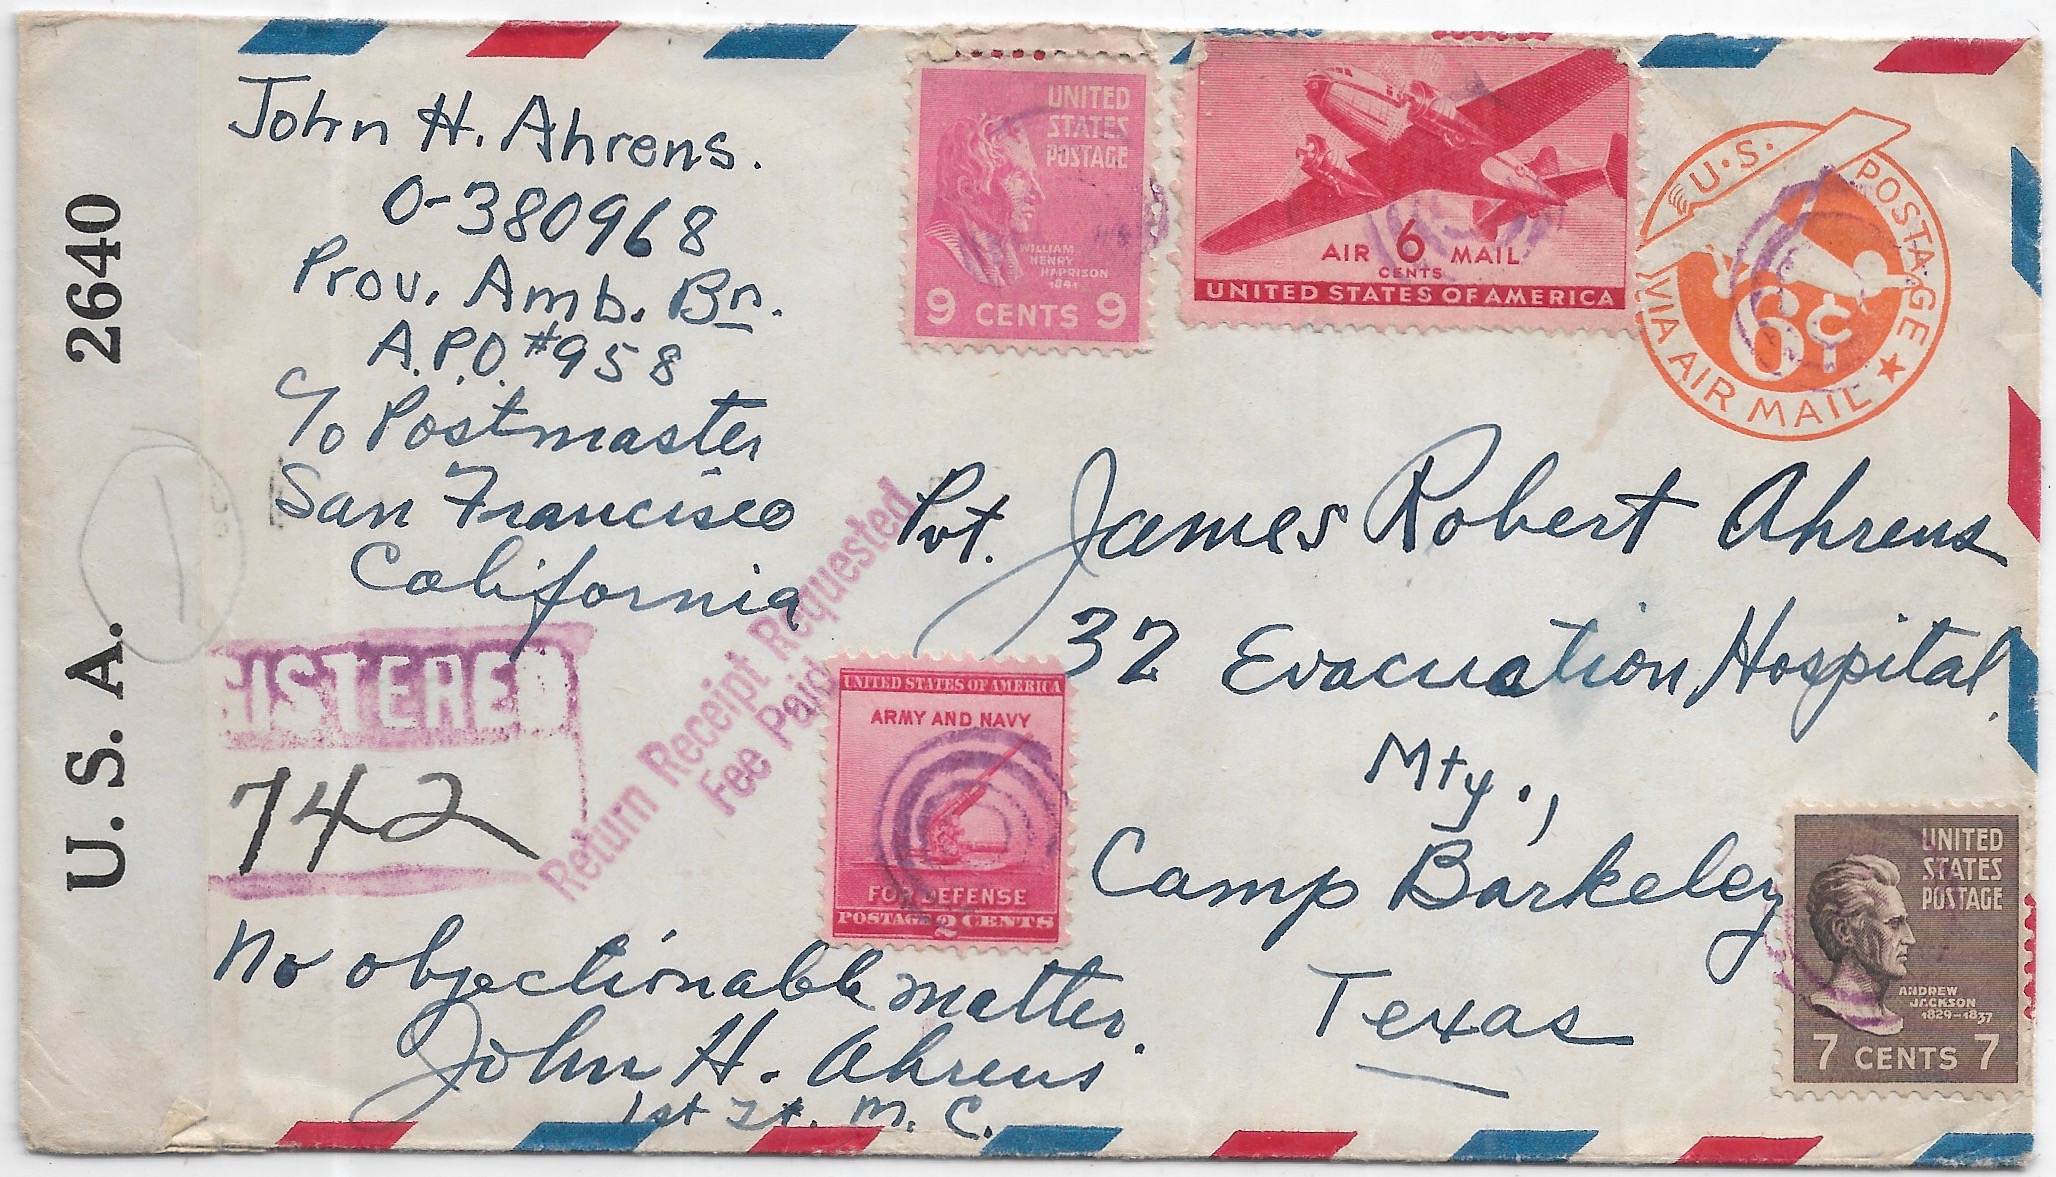 John H. Ahrens.
O-380968
Prov. Amb. Bn.
A.P.O. #958
c/o Postmaster
San Francisco
California
U.S.A. 2640
UNITED
STATES
POSTAGE
WILLIAM
HENRY
HARRISON
1841
9 CENTS 9
AIR 6 MAIL
CENTS
UNITED STATES OF AMERICA
U.S. POSTAGE
6¢
VIA AIR MAIL
Pvt. James Robert Ahrens
32 Evacuation Hospital,
Mty.,
Camp Barkeley
Texas
ISTERED
742
Return Receipt Requested
Fee Paid
UNITED STATES OF AMERICA
ARMY AND NAVY
FOR DEFENSE
POSTAGE 2 CENTS
UNITED
STATES
POSTAGE
ANDREW
JACKSON
1829-1837
7 CENTS 7
No objectionable matter.
John H. Ahrens
1st Lt. M.C.